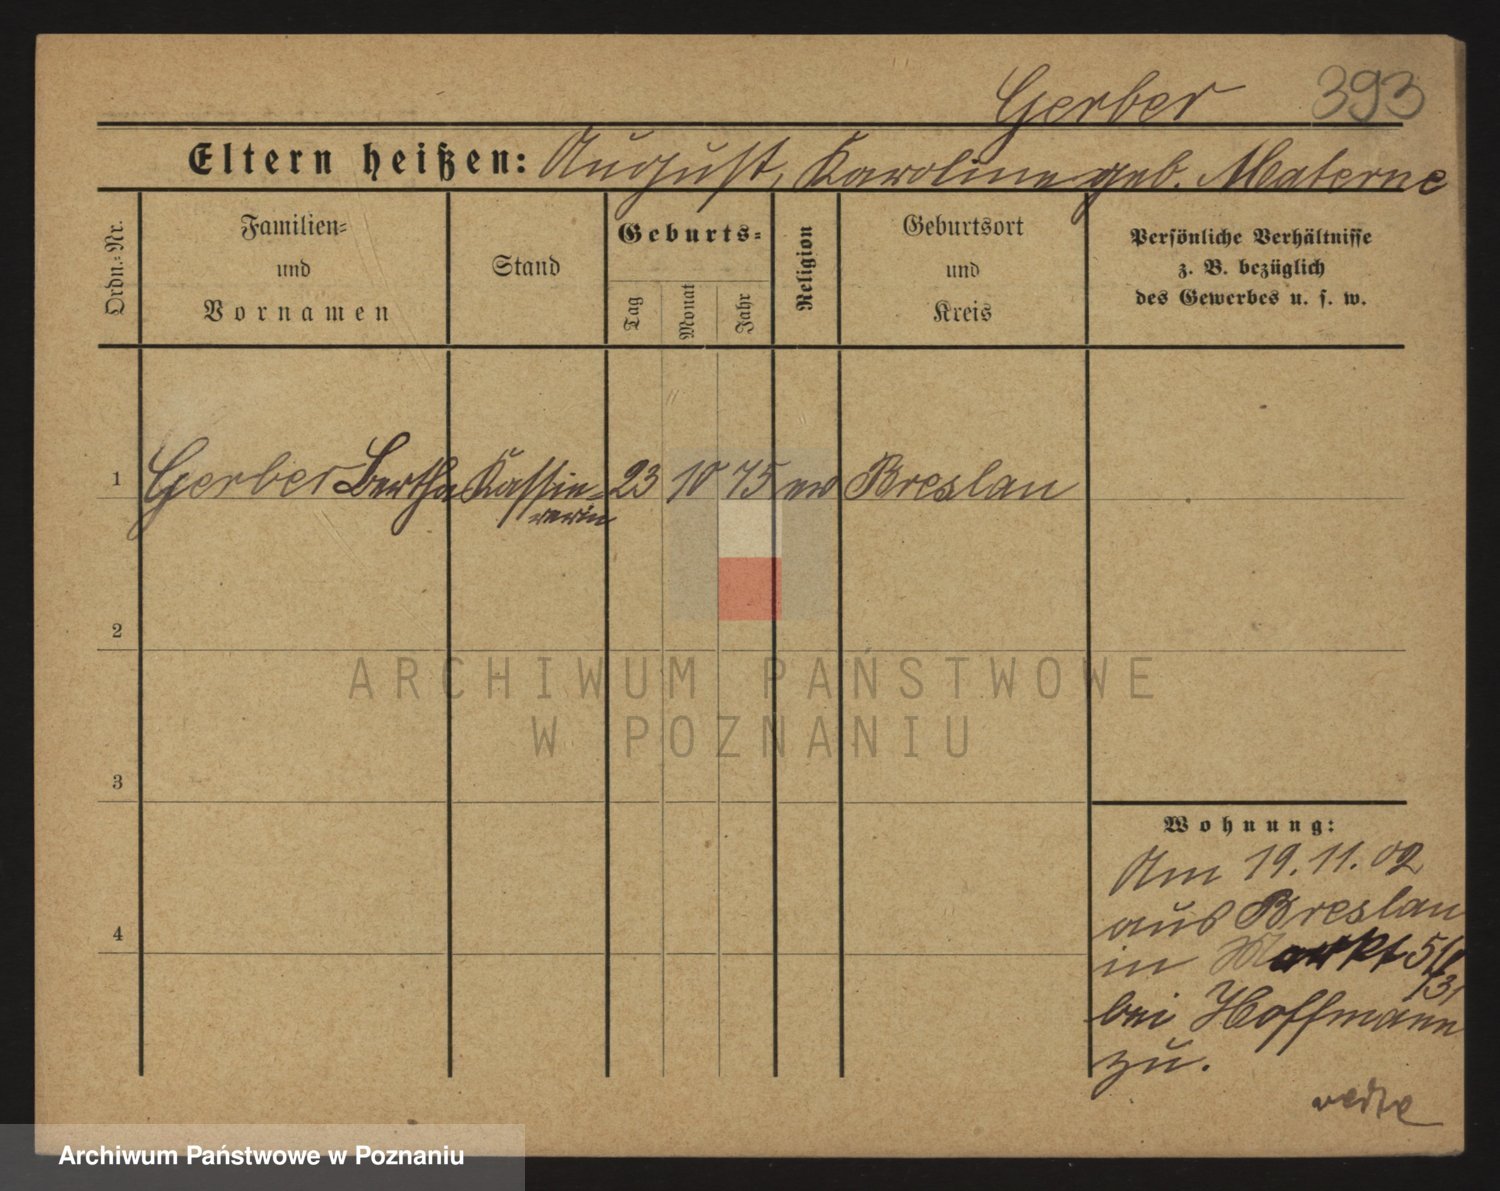 Gerber 393
Eltern heißen: August, Karoline geb. Materne
Ordn.-Nr.
Familien-
und
Vornamen
Stand
Geburts-
Tag
Monat
Jahr
Religion
Geburtsort
und
Kreis
Persönliche Verhältnisse
z. B. bezüglich
des Gewerbes u. s. w.
1 Gerber Bertha Kassie- 23 10 75 ev Breslau
rerin
2
3
4
ARCHIWUM PAŃSTWOWE
W POZNANIU
Wohnung:
Am 19.11.02
aus Breslau
in Markt
bei Hoffmann
zu.
Archiwum Państwowe w Poznaniu